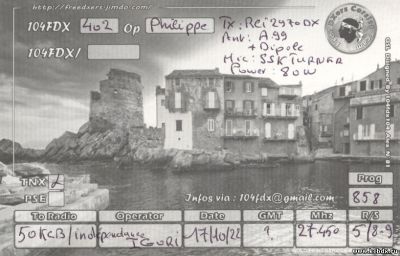 http://freedxers-jimdo.com/
104FDX 402 Op Philippe
104FDX/
Tx: Rei 2970DX
Ant: A99
+ Dipole
Mic: SSK TURNER
Power: 80W
TNX
PSE
Infos via : 104fdx@gmail.com
Prog
858
To Radio Operator Date GMT Mhz R/S
50KCB/indépendance 17/10/22 ? 27.450 5/8-9